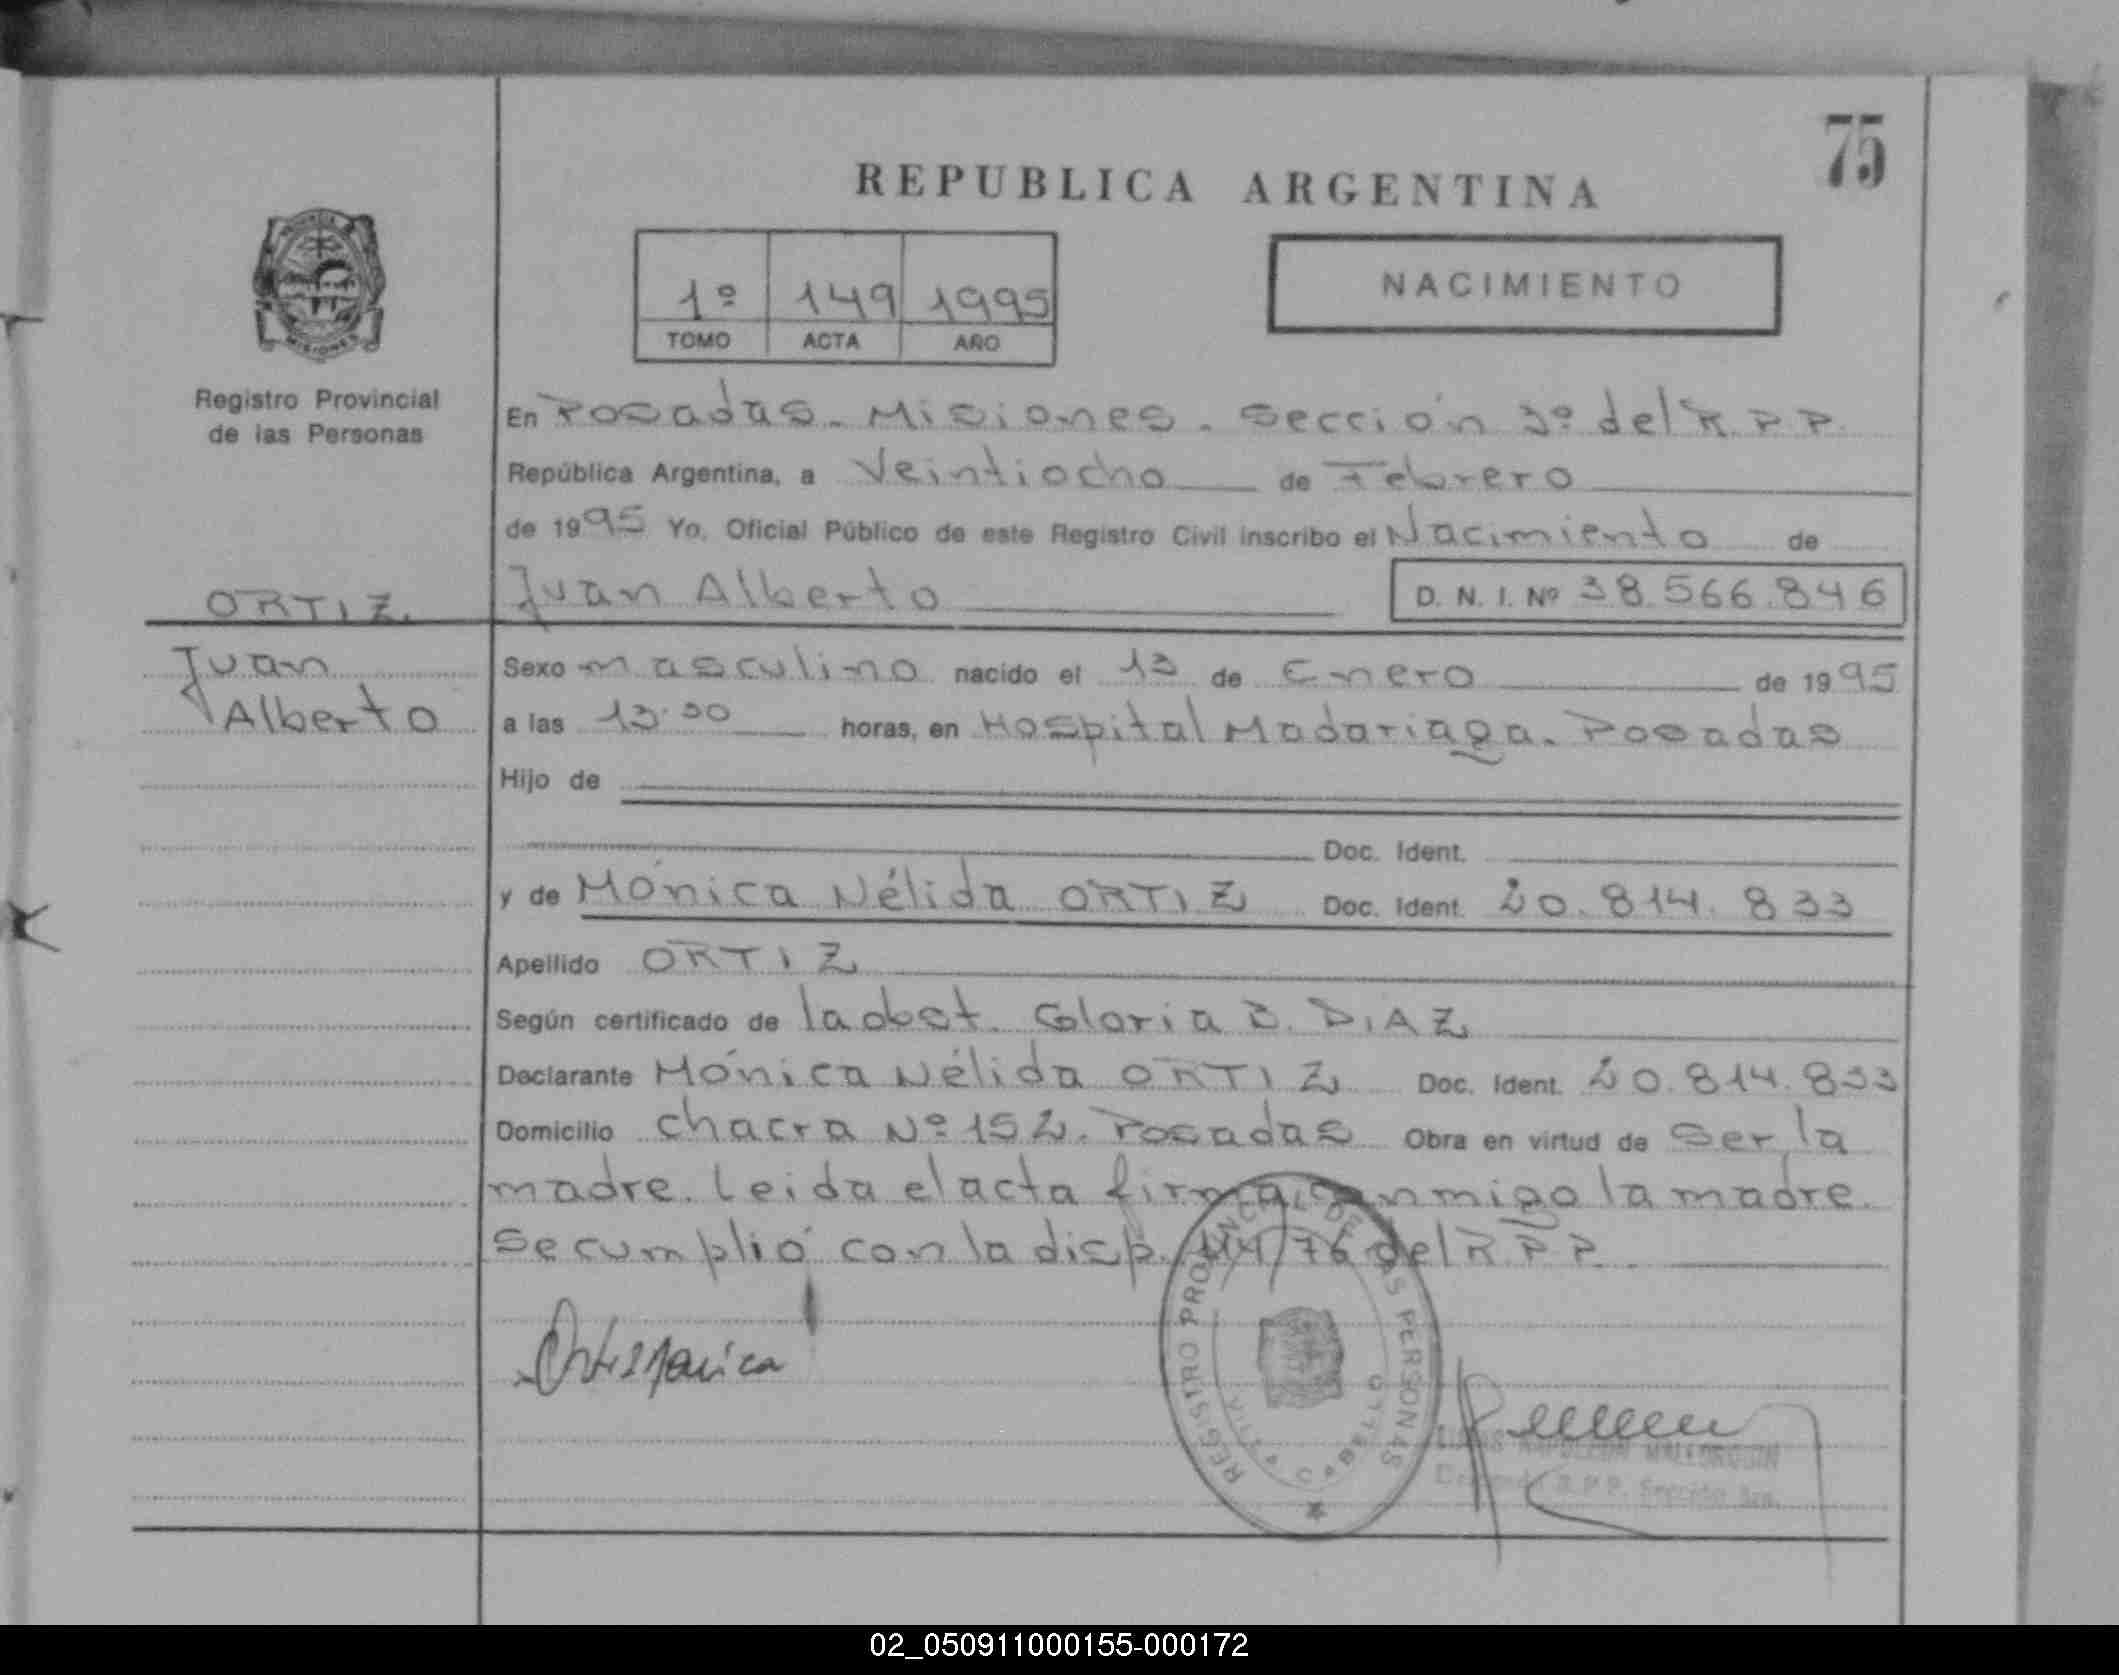 75
REPUBLICA ARGENTINA
1º 149 1995
TOMO ACTA AÑO
NACIMIENTO
MISIONES
Registro Provincial
de las Personas
En Posadas. Misiones. Sección 3º del R.P.P.
República Argentina, a Veintiocho de Febrero
de 1995 Yo, Oficial Público de este Registro Civil inscribo el Nacimiento de
ORTIZ.
Juan Alberto D. N. I. Nº 38.566.846
Juan
Alberto
Sexo masculino nacido el 13 de Enero de 1995
a las 13:30 horas, en Hospital Madariaga. Posadas
Hijo de
Doc. Ident.
y de Mónica Nélida ORTIZ Doc. Ident. 20.814.833
Apellido ORTIZ
Según certificado de la obst. Gloria B. DIAZ
Declarante Mónica Nélida ORTIZ Doc. Ident. 20.814.833
Domicilio chacra Nº 152. Posadas Obra en virtud de ser la
madre. Leida el acta firma conmigo la madre.
Se cumplió con la disp. 114/76 del R.P.P.
Ortiz Monica
REGISTRO PROVINCIAL DE LAS PERSONAS
VILLA CABELLO
NAPOLEON MALLORQUIN
R.P.P. Sección 3ra.
02_050911000155-000172